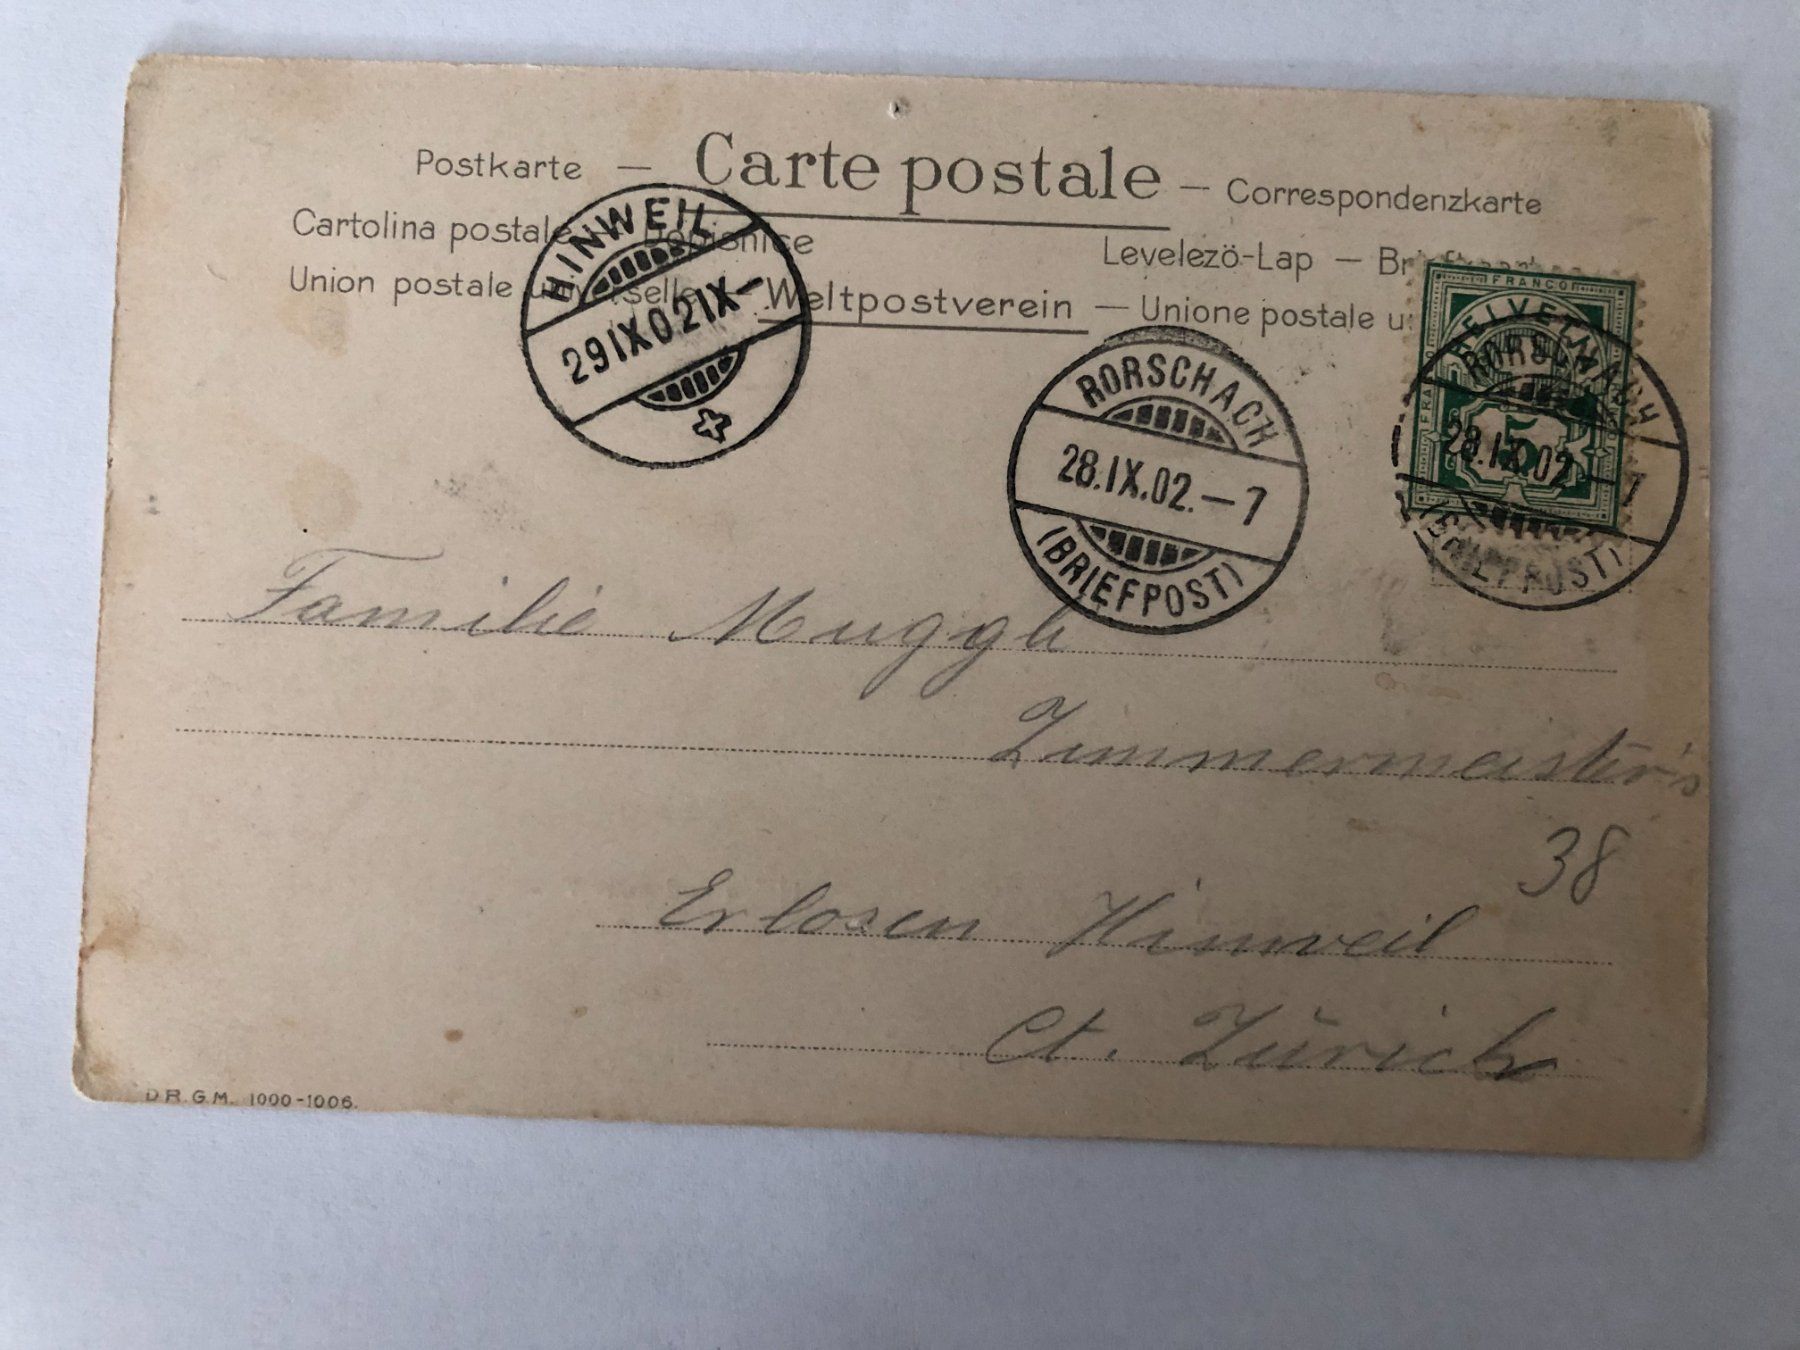 Postkarte — Carte postale — Correspondenzkarte
Cartolina postale Dopisnice Levelezö-Lap — Briefkaart
Union postale universelle — Weltpostverein — Unione postale u
HINWEIL
29 IX 02 IX —
RORSCHACH
28.IX.02. — 7
(BRIEFPOST)
FRANCO
HELVETIA
5
RORSCHACH
28.IX.02 — 7
(BRIEFPOST)
Familie Muggli
Zimmermeister's
38
Erlosen Hinweil
Ct. Zürich
D.R.G.M. 1000-1006.